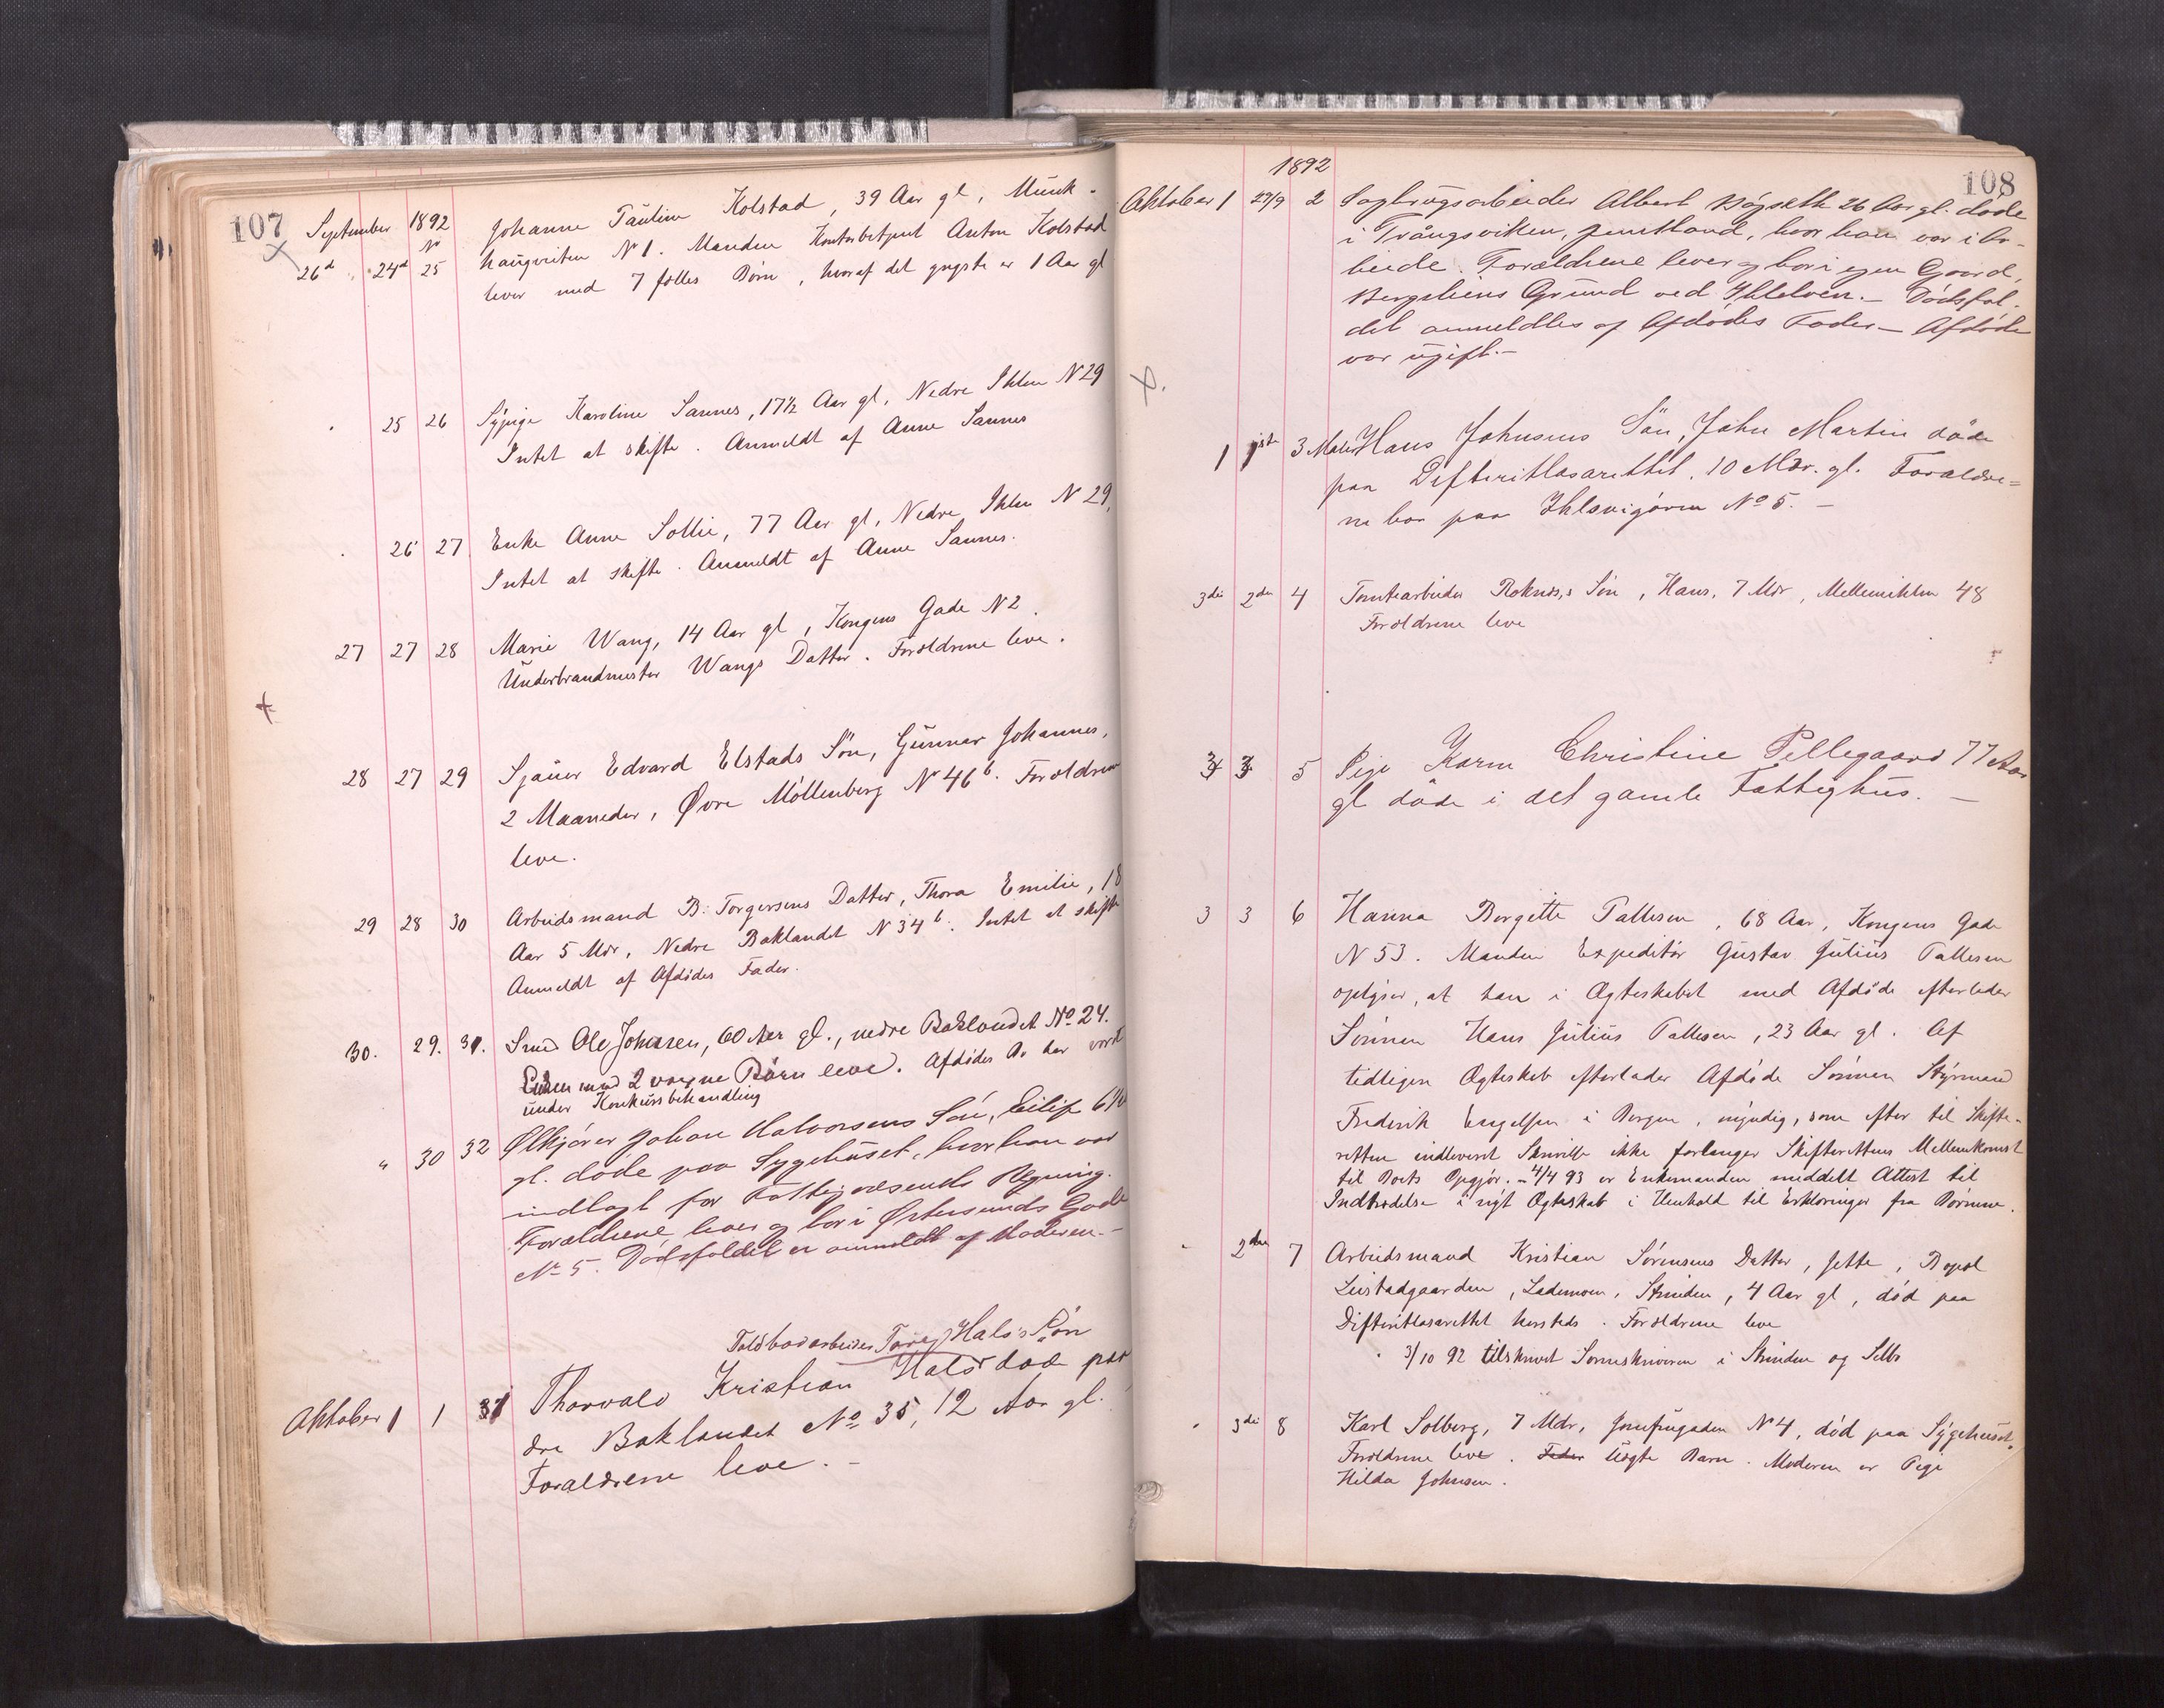 107
September 1892
26d 24d N 25 Johanne Pauline Kolstad, 39 Aar gl, Munk-
haugveiten N 1. Manden Kontorbetjent Anton Kolstad
lever med 7 fælles Børn, hvoraf det yngste er 1 Aar gl
25 26 Sypige Karoline Sannes, 17½ Aar gl, Nedre Ihlen N 29
Intet at skifte. Anmeldt af Anne Sannes
26 27 Enke Anne Sollie, 77 Aar gl, Nedre Ihlen N 29,
Intet at skifte. Anmeldt af Anne Sannes.
27 27 28 Marie Wang, 14 Aar gl, Kongens Gade N 2.
Underbrandmester Wangs Datter. Forældrene leve.
28 27 29 Sjauer Edvard Elstads Søn, Gunnar Johannes,
2 Maaneder, Øvre Møllenberg N 46b. Forældrene
leve.
29 28 30 Arbeidsmand B. Torgersens Datter, Thora Emilie, 18
Aar 5 Mdr, Nedre Baklandet N 34b. Intet at skifte
Anmeldt af Afdødes Fader.
30. 29. 31. Smed Ole Johnsen, 60 Aar gl., nedre Baklandet No 24.
Enken med 2 voxne Børn leve. Afdødes Bo har været
under Konkursbehandling
" 30 32 Ølkjører Johan Halvorsens Søn, Eilif 6 Aar
gl. døde paa Sygehuset, hvor han var
indlagt for Fattigvæsenets Regning.
Forældrene lever og bor i Østersunds Gade
No 5. Dødsfaldet er anmeldt af Moderen.-
Toldbodarbeider Hals's Søn
Oktober 1 1 1 Thorvald Kristian Hals død paa
dre Baklandet No 35, 12 Aar gl.
Forældrene leve.-
108
1892
Oktober 1 29/9 2 Sagbrugsarbeider Albert Bøjseth 26 Aar gl. døde
i Trångsviken, Jemtland, hvor han var i Ar-
beide. Forældrene lever og bor i egen Gaard,
Bergsliens Grund ved Ihlelven.- Dødsfal-
det anmeldtes af Afdødes Fader- Afdøde
var ugift.-
1 1ste 3 Maler Hans Johnsens Søn, John Martin døde
paa Difteritlasarettet, 10 Mdr. gl. Forældre=
ne bor paa Ihlsvigøren No 5.-
3die 2den 4 Tomtearbeider Roknes,s Søn, Hans, 7 Mdr, Mellemihlen 48
Forældrene leve
3 3 5 Pige Karen Christine Pellegaard 77 Aar
gl døde i det gamle Fattighus.-
3 3 6 Hanna Bergitte Pallesen, 68 Aar, Kongens Gade
N 53. Manden Expeditør Gustav Julius Pallesen
oplyser, at han i Ægteskabet med Afdøde efterlader
Sønnen Hans Julius Pallesen, 23 Aar gl. Af
tidligere Ægteskab efterlader Afdøde Sønnen Styrmand
Frederik Engelsen i Bergen, myndig, som efter til Skifte-
retten indleveret Skrivelse ikke forlanger Skifterettens Mellemkomst
til Boets Opgjør.- 4/4 93 er Enkemanden meddelt Attest til
Indtrædelse i nyt Ægteskab i Henhold til Erklæringer fra Børnene.
2den 7 Arbeidsmand Kristian Sørensens Datter, Jette, Bopæl
Leistadgaarden, Lademoen, Strinden, 4 Aar gl, død paa
Difteritlasarettet hersteds. Forældrene leve
3/10 92 tilskrevet Sorenskriveren i Strinden og Selbu
3die 8 Karl Solberg, 7 Mdr, Jomfrugaden N 4, død paa Sygehuset.
Forældrene leve. Fader Uægte Barn. Moderen er Pige
Hilda Johnsen.